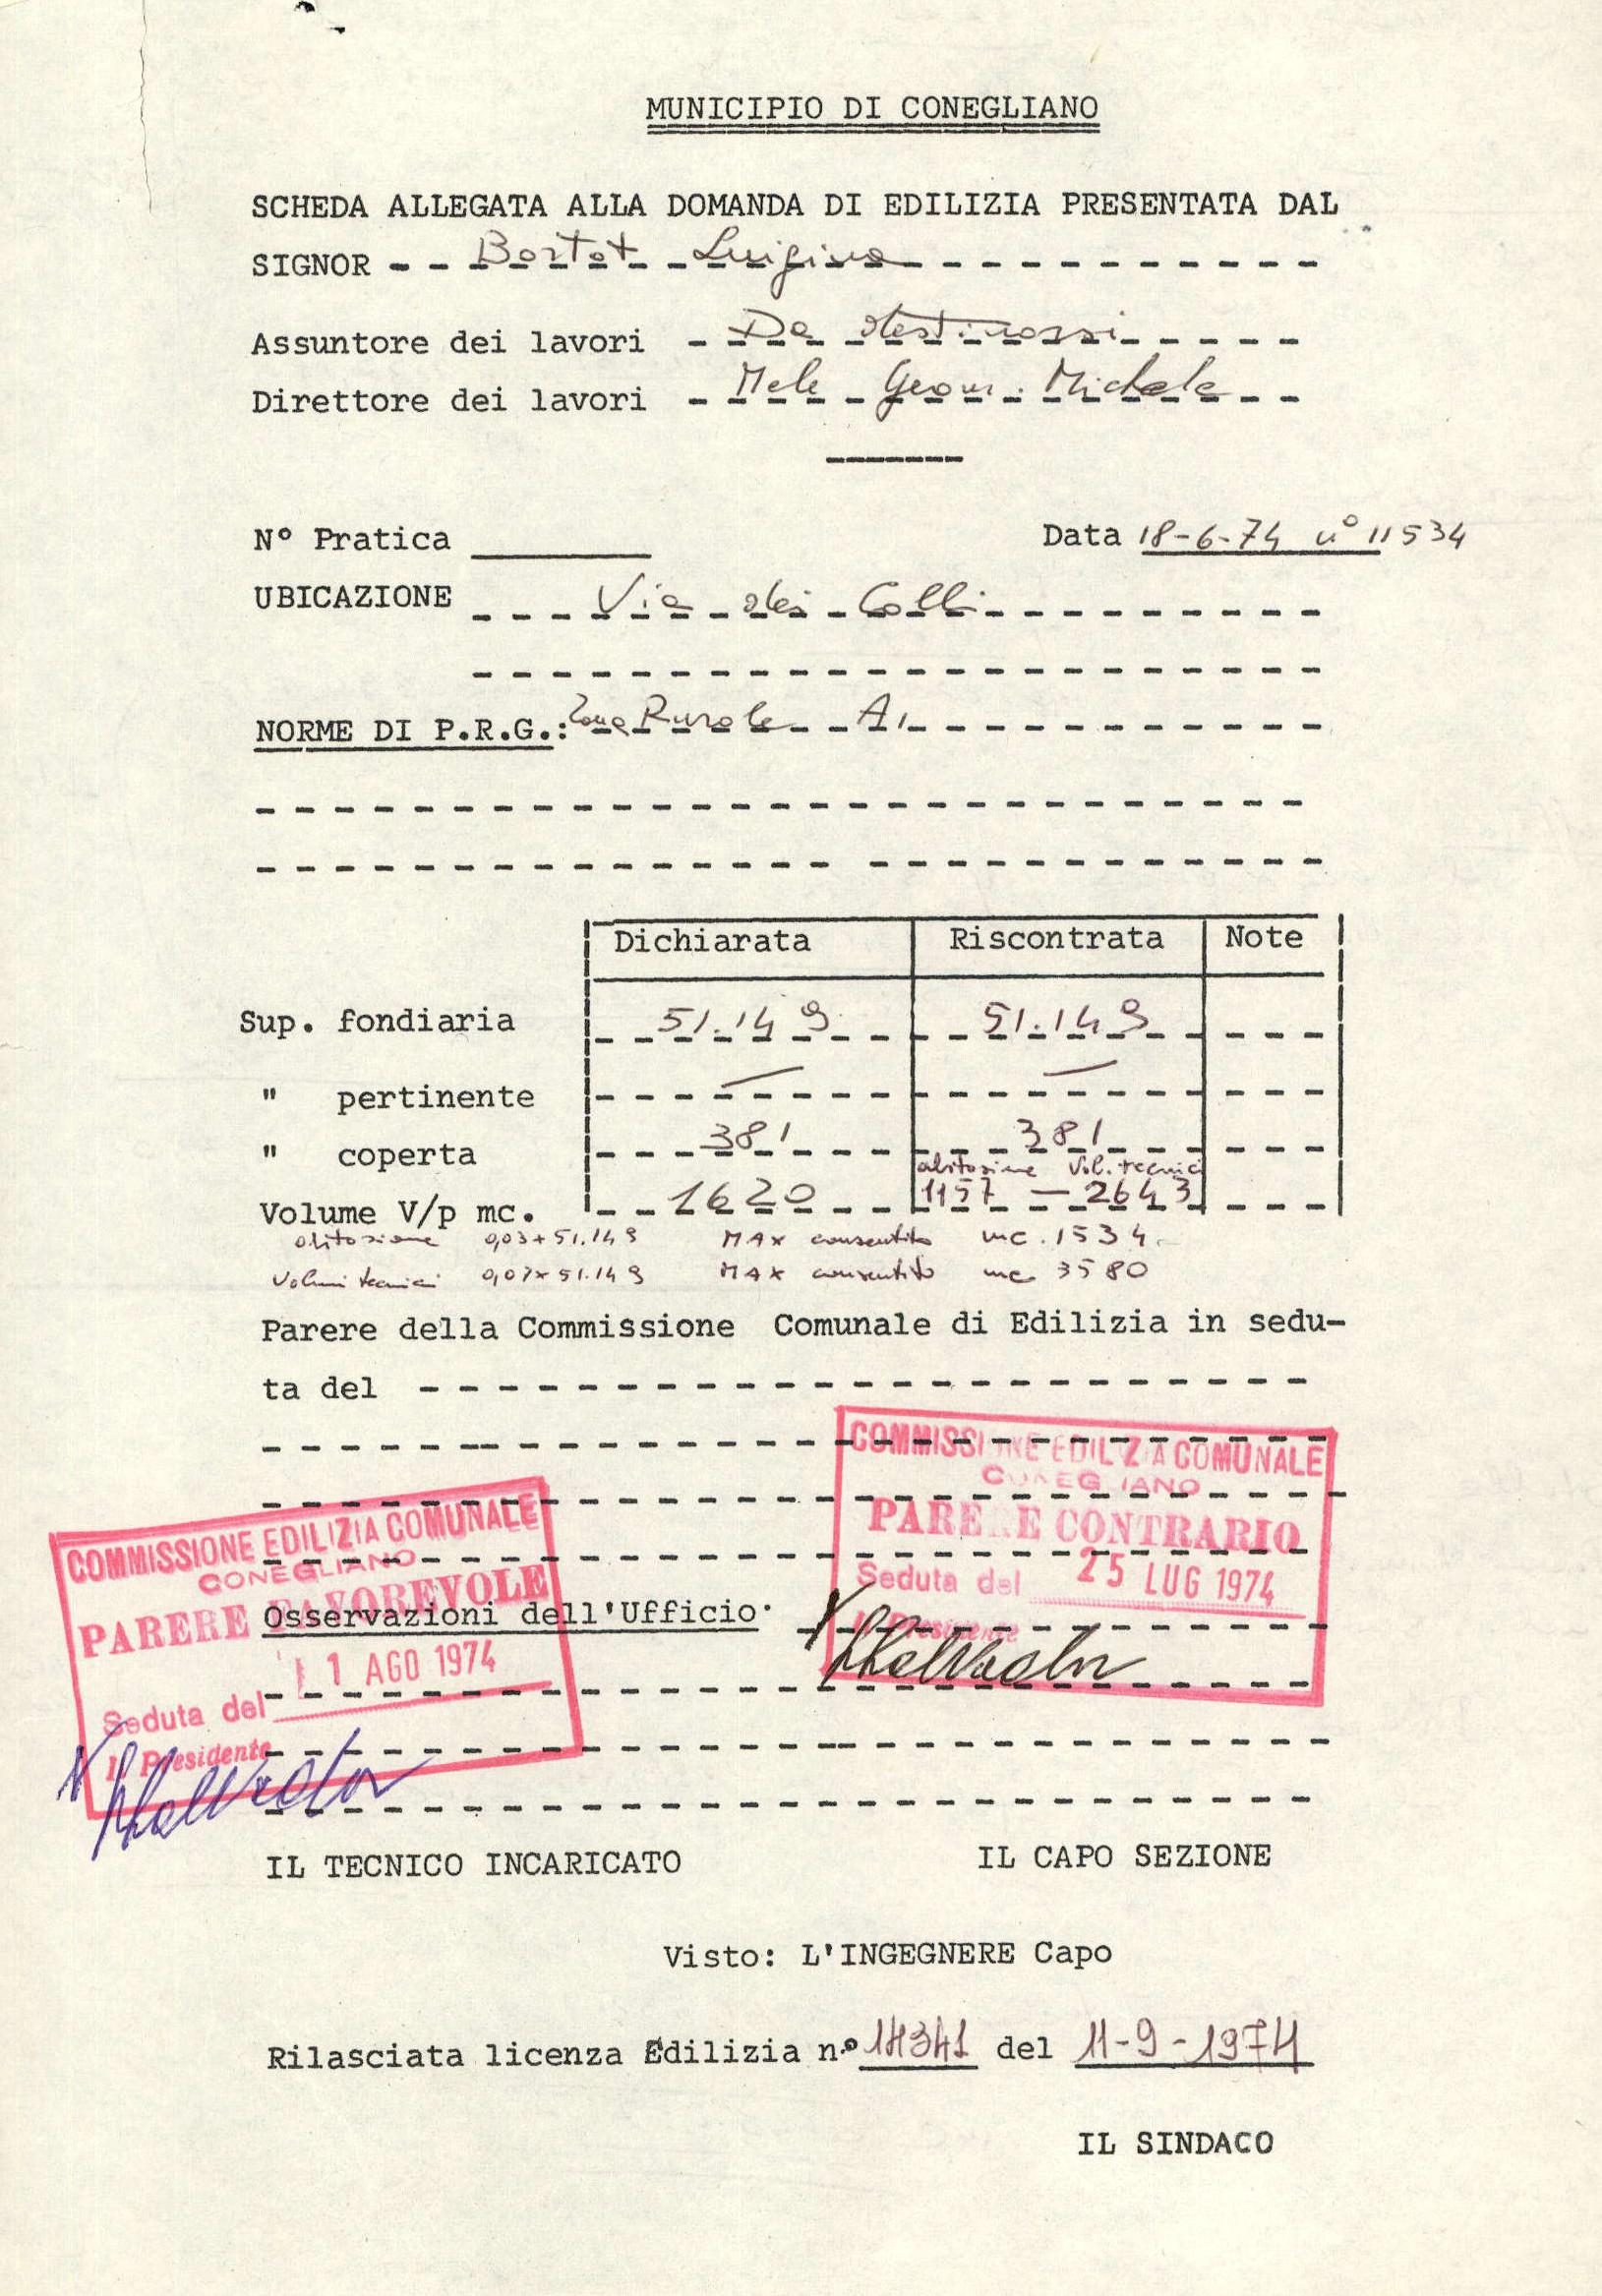 MUNICIPIO DI CONEGLIANO
SCHEDA ALLEGATA ALLA DOMANDA DI EDILIZIA PRESENTATA DAL
SIGNOR Bortot Luigina
Assuntore dei lavori Da destinarsi
Direttore dei lavori Mele Geom. Michele
N° Pratica Data 18-6-74 n° 11534
UBICAZIONE Via dei Colli
NORME DI P.R.G.: Zona Rurale A1
Dichiarata Riscontrata Note
Sup. fondiaria 51.149 51.149
" pertinente — —
" coperta 381 381
abitazione Vol. tecnici
Volume V/p mc. 1620 1157 — 2643
abitazione 0,03 x 51.149 MAX consentito mc. 1534
Volumi tecnici 0,07 x 51.149 MAX consentito mc 3580
Parere della Commissione Comunale di Edilizia in sedu-
ta del
COMMISSIONE EDILIZIA COMUNALE
CONEGLIANO
PARERE CONTRARIO
Seduta del 25 LUG 1974
Il Presidente
COMMISSIONE EDILIZIA COMUNALE
CONEGLIANO
PARERE FAVOREVOLE
Osservazioni dell'Ufficio
Seduta del 1 AGO 1974
Il Presidente
IL TECNICO INCARICATO IL CAPO SEZIONE
Visto: L'INGEGNERE Capo
Rilasciata licenza Edilizia n.° 14341 del 11-9-1974
IL SINDACO